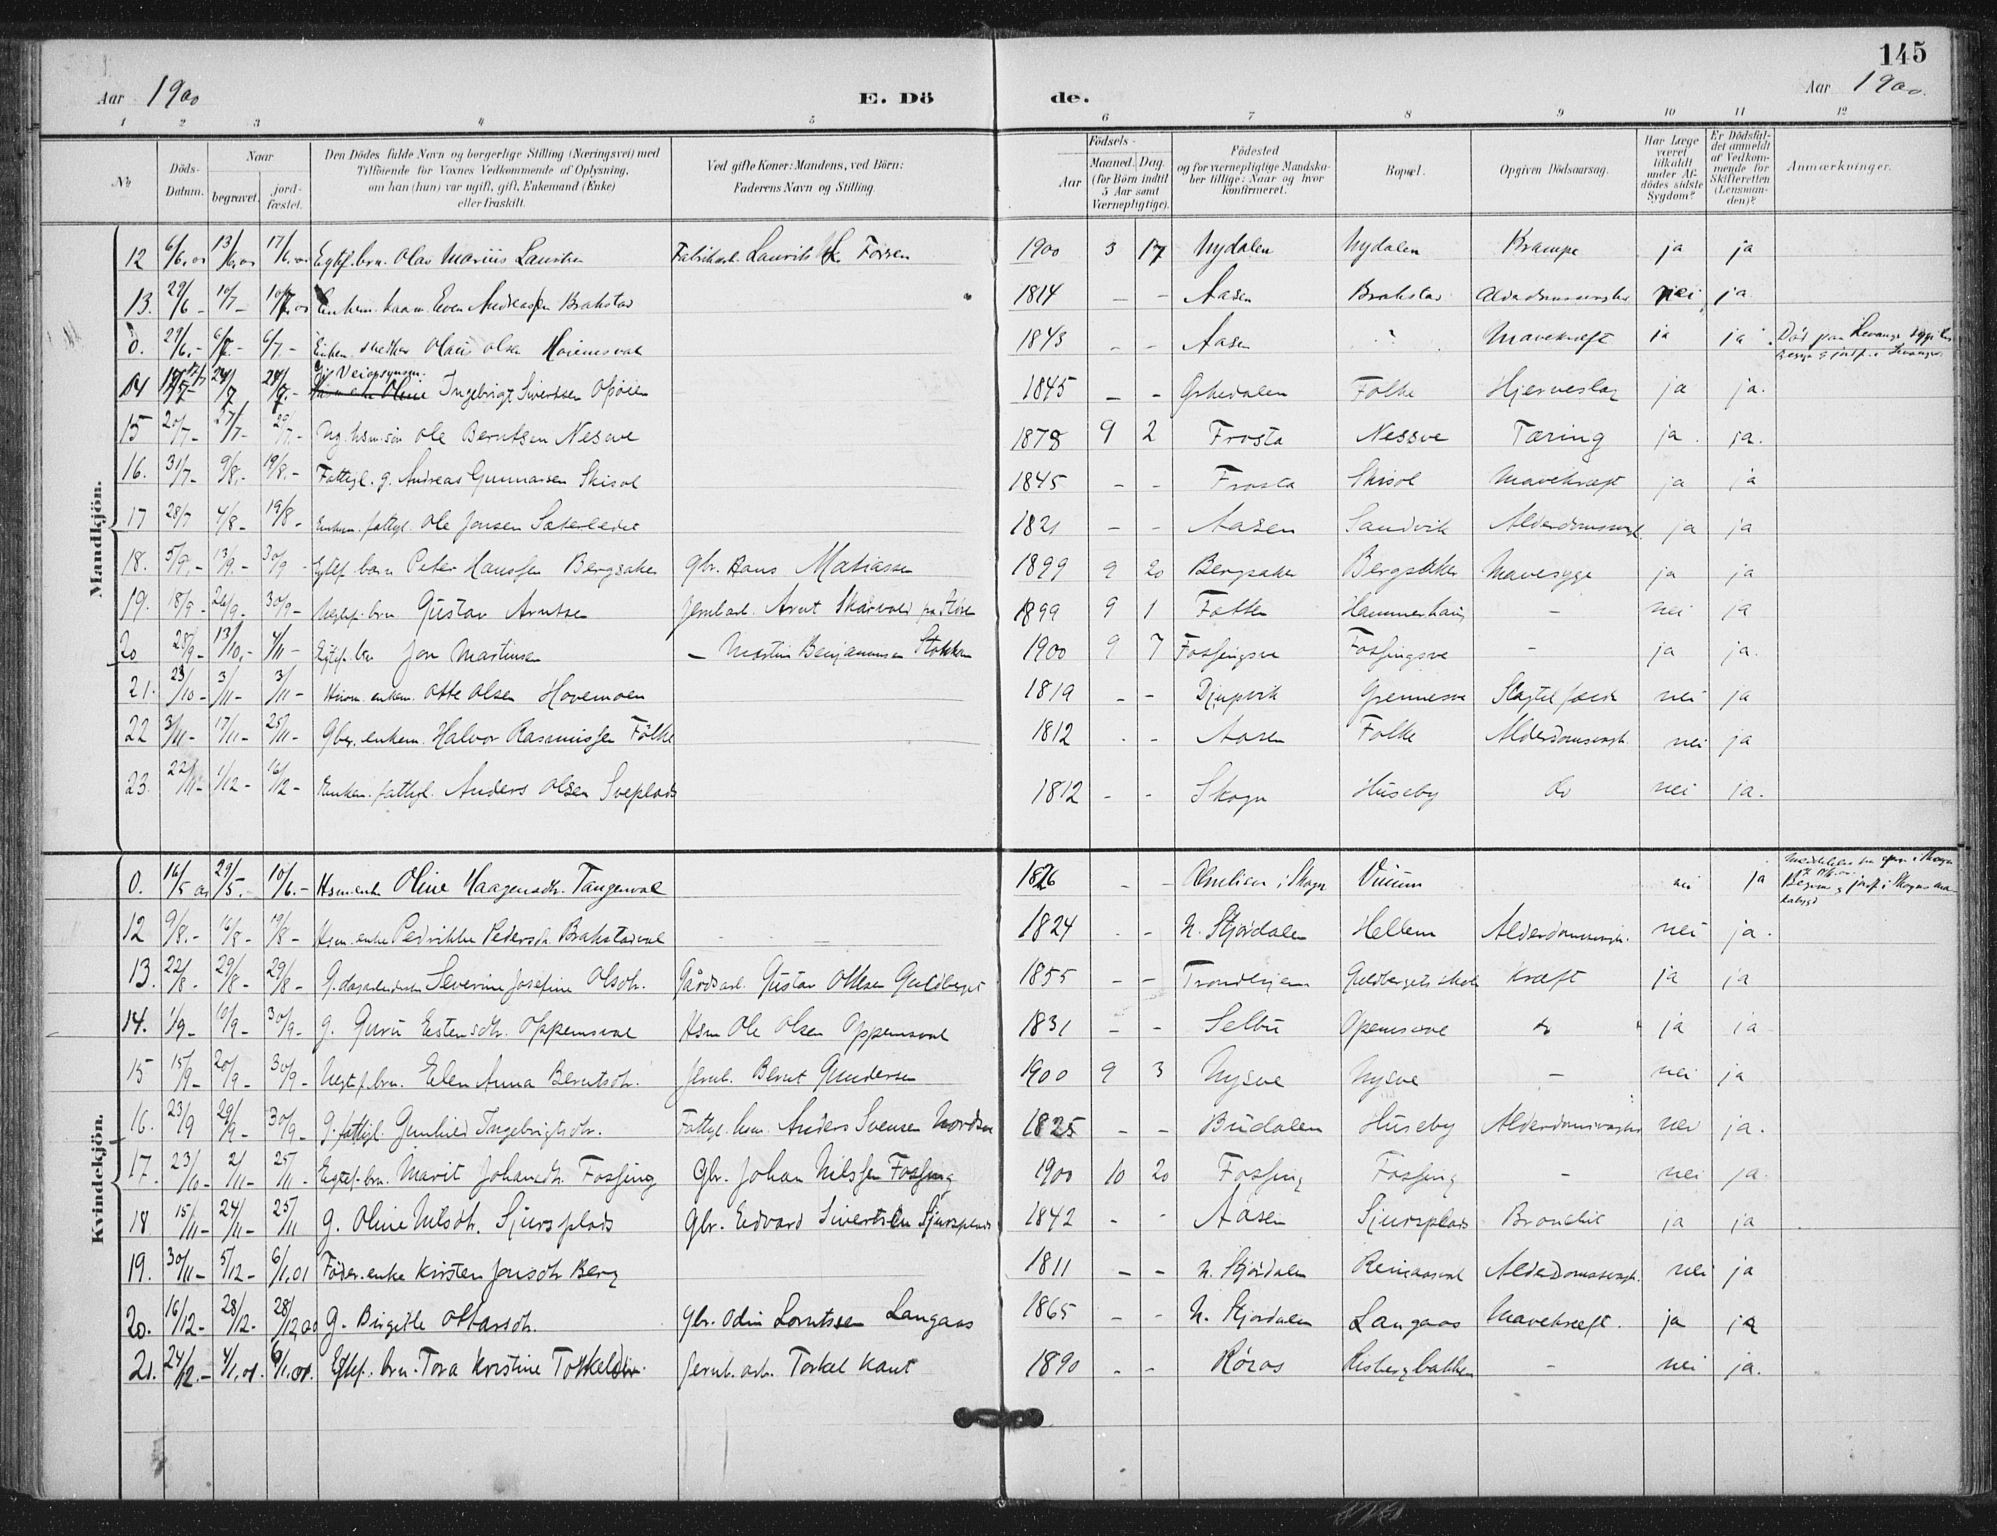 145
Aar 1900 E. Dö de. Aar 1900.
1 2 3 4 5 6 7 8 9 10 11 12
No Döds-Datum. Naar begravet. jord-fæstet. Den Dödes fulde Navn og borgerlige Stilling (Næringsvei) med Tilföiende for Voxnes Vedkommende af Oplysning, om han (hun) var ugift, gift, Enkemand (Enke) eller fraskilt. Ved gifte Koner: Mandens, ved Börn: Faderens Navn og Stilling. Födsels- Aar Maaned. Dag. (for Börn indtil 5 Aar samt Værnepligtige). Födested og for værnepligtige Mandska-ber tillige: Naar og hvor konfirmeret. Bopæl. Opgiven Dödsaarsag. Har Læge været tilkaldt under Af-dödes sidste Sygdom? Er Dödsfal-det anmeldt af Vedkom-mende for Skifteretten (Lensman-den)? Anmærkninger.
Mandkjön.
12 6/6.00 13/6.00 17/6.00 Egtef. brn. Olav Marius Lauritsen Fabrikarb. Laurits Forsen 1900 3 17 Nydalen Nydalen Krampe ja ja
13. 29/6 10/7 - Even Andreassen Brakstad 1814 - - Aasen Brakstad nei ja
0. 29/6.- 6/7.- 6/7.- Enkem. Olaus Olsen 1843 - - Aasen Mavekræft ja ja
14 24/7 Ingebrigt Sivertsen Opöien 1845 - - Folke Hjerteslag ja ja.
15 20/7- 27/7- 29/7.- Ug. hsm. sön Ole Berntsen Nesve 1878 9 2 Frosta Nessve Tæring ja. ja.
16. 31/7- 9/8.- 19/8.- Fattigl. g. Andreas Gunnarsen Skisol 1845 - - Frosta Skisol Mavekræft ja ja
17 28/7 4/8- 19/8- Enkem. fattigl. Ole Jonsen Sæterledet 1821 - - Aasen Sandvik ja ja
18. 5/9.- 13/9.- 30/9 - Egtef. barn Peter Hanssen Bergsaker Gbr. Hans Matiassen 1899 9 20 Bergsaker Bergsaker Mavesyge ja ja
19. 18/9- 26/9- 30/9- Uegtef. brn Gustav Arntsen Jernbarb. Arnt Skarvold 1899 9 1 Hammerhaug - nei ja
20 28/9- 13/10.- 4/11- Egtef. brn Jon Martinsen - Martin Benjaminsen Stokkan 1900 9 7 Fossingsve Fossingsve - ja ja.
21. 23/10- 3/11- 3/11- Hsm. enkem. Otte Olsen Hovemoen 1819 - - Djupvik Grennesve nei ja
22 3/11- 17/11- 25/11- Gbr. enkem. Halvor Rasmussen Folke 1812 - - Aasen Folke nei ja
23. 22/11- 1/12- 16/12- Enkem. fattigl. Anders Olsen Sveplads 1812 - - Skogn Huseby do nei ja.
Kvindekjön.
0. 16/5 00 29/5.- 10/6.- Hsm. enke Oline Haagensdtr. Tangenval 1826 - - i Skogn Vinum nei ja
12 9/8.- 16/8- 19/8- Hsm. enke Pedrikke Pedersdr. Brakstadval 1824 - - N. Stjördalen Hellem nei ja.
13. 22/8- 29/8- 29/8- Severine Josefine Olsdtr. Gårdsarb. Gustav Ottesen Guldberget 1855 - - Trondhjem kræft ja ja
14. 1/9- 10/9- 30/9- g. Guru Estensdtr. Oppemsval Hsm Ole Olsen Oppemsval 1831 - - Selbu do ja ja
15 15/9- 20/9- 30/9- Uegtef. brn. Elen Anna Berntsdtr. Jernb. Bernt Gundersen 1900 9 3 Nysve Nysve - nei ja
16. 23/9 29/9- 30/9- g. fattigl. Gunhild Ingebrigtsdtr. Fattigl. hsm. Anders Svensen 1825 - - Budalen Huseby nei ja.
17. 23/10- 2/11- 25/11- Egtef. brn. Marit Johansdtr. Fossing Gbr. Johan Nilssen Fossing 1900 10 20 Fossing Fossing - nei ja.
18 15/11- 24/11- 25/11 g. Oline Nilsdtr. Sjursplads Gbr. Edvard Sivertsen Sjursplads 1842 - - Aasen Sjursplads ja ja
19. 30/11- 5/12- 6/1.01 Föder. enke Kirsten Jonsdtr Berg 1811 - - N. Stjördalen nei ja
20. 16/12- 28/12- 28/12.00 g. Birgitte Ottarsdtr. Gbr. Odin Lorntssen Langaas 1865 - - N. Stjördalen Langaas Mavekræft. ja ja
21. 24/12.- 4/1.01. 6/1.01. Egtef. brn. Tora Kristine Torkelsdtr. Jernb. arb. Torkel Kant 1890 - - Röros Risbergbakken - nei ja.